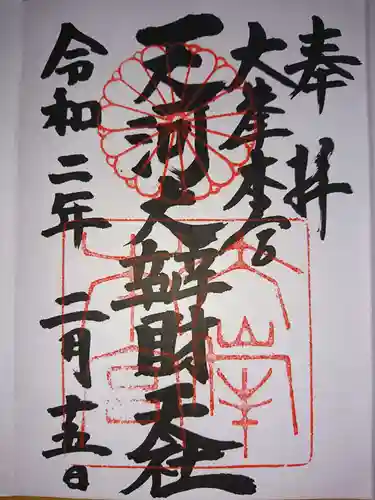 奉拝
大峯本宮
天河大辯財天社
令和二年二月十五日